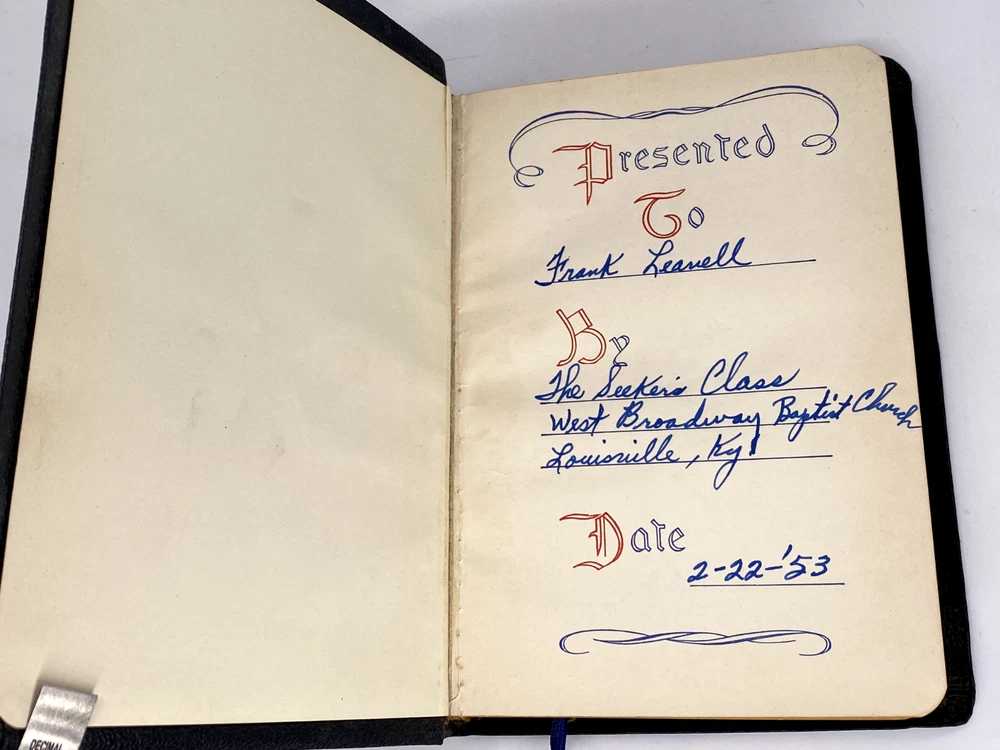 Presented
To
Frank Leavell
By
The Seekers Class
West Broadway Baptist Church
Louisville, Ky
Date
2-22-'53
DECIMAL